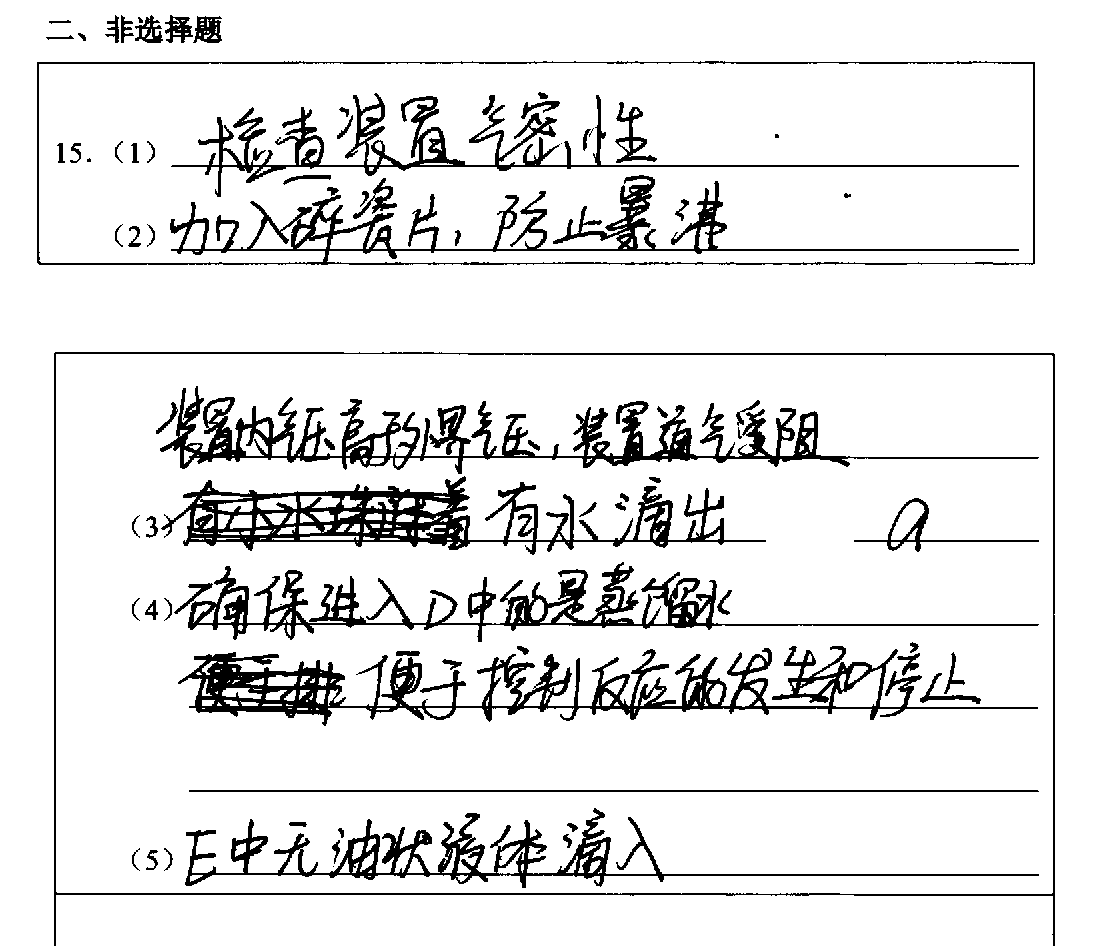 二、非选择题
15.（1）检查装置气密性
（2）加入碎瓷片，防止暴沸
装置内气压高于外界气压，装置通气受阻
（3）有水滴出 a
（4）确保进入D中的是蒸馏水
便于控制反应的发生和停止
（5）E中无油状液体滴入